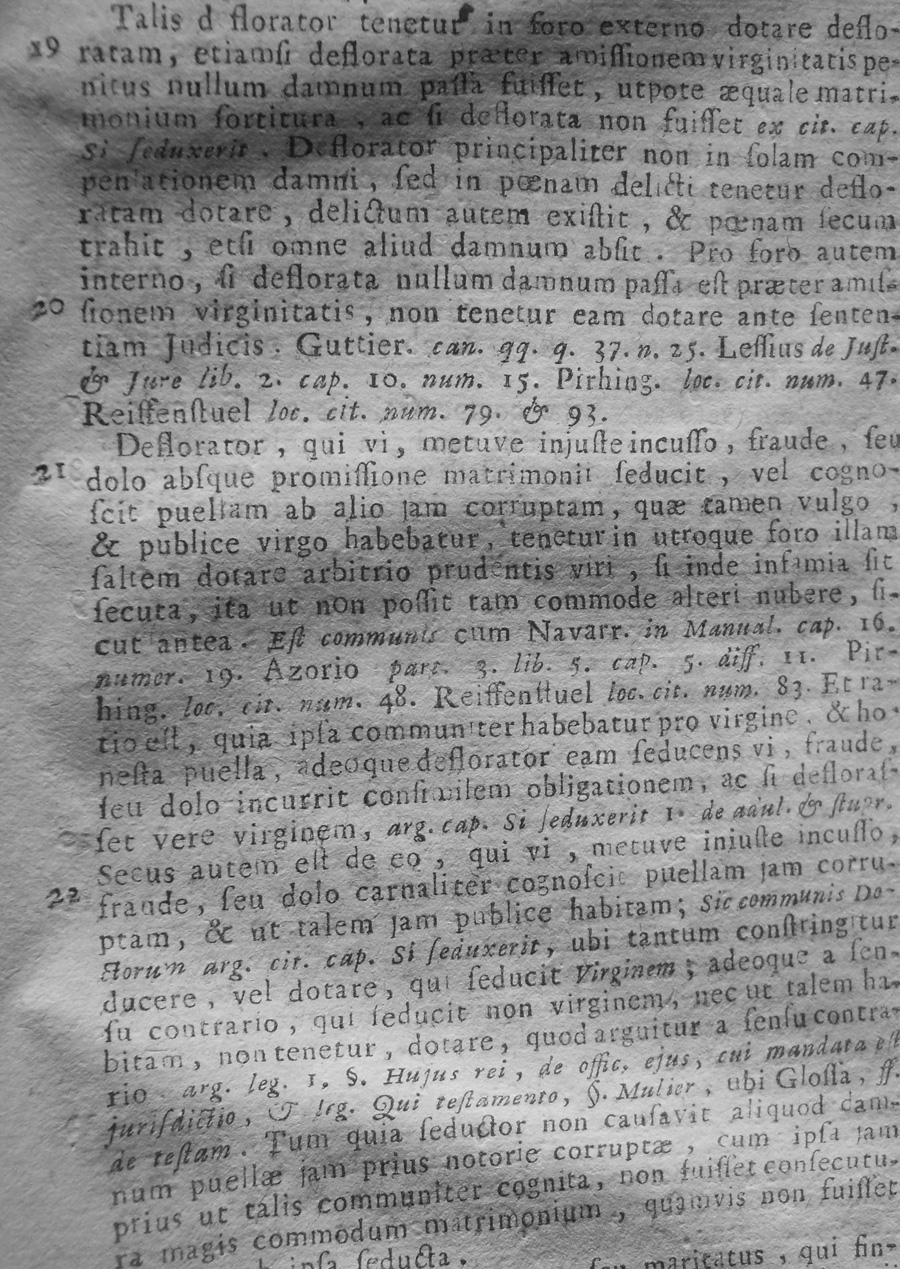 Talis d florator tenetur in foro externo dotare deflo-
19 ratam, etiamſi deflorata præter amiſſionem virginitatis pe-
nitus nullum damnum paſſa fuiſſet, utpote æquale matri-
monium ſortitura, ac ſi deflorata non fuiſſet ex cit. cap.
Si ſeduxerit. Deflorator principaliter non in ſolam com-
penſationem damni, ſed in pœnam delicti tenetur deflo-
ratam dotare, delictum autem exiſtit, & pœnam ſecum
trahit, etſi omne aliud damnum abſit. Pro foro autem
interno, ſi deflorata nullum damnum paſſa eſt præter amiſ-
20 ſionem virginitatis, non tenetur eam dotare ante ſenten-
tiam Judicis. Guttier. can. qq. q. 37. n. 25. Leſſius de Juſt.
& Jure lib. 2. cap. 10. num. 15. Pirhing. loc. cit. num. 47.
Reiffenſtuel loc. cit. num. 79. & 93.
Deflorator, qui vi, metuve injuſte incuſſo, fraude, ſeu
21 dolo abſque promiſſione matrimonii ſeducit, vel cogno-
ſcit puellam ab alio jam corruptam, quæ tamen vulgo,
& publice virgo habebatur, tenetur in utroque foro illam
ſaltem dotare arbitrio prudentis viri, ſi inde infamia ſit
ſecuta, ita ut non poſſit tam commode alteri nubere, ſi-
cut antea. Eſt communis cum Navarr. in Manual. cap. 16.
numer. 19. Azorio part. 3. lib. 5. cap. 5. diff. 11. Pir-
hing. loc. cit. num. 48. Reiffenſtuel loc. cit. num. 83. Et ra-
tio eſt, quia ipſa communiter habebatur pro virgine, & ho-
neſta puella, adeoque deflorator eam ſeducens vi, fraude,
ſeu dolo incurrit conſimilem obligationem, ac ſi defloraſ-
ſet vere virginem, arg. cap. Si ſeduxerit 1. de adul. & ſtupr.
Secus autem eſt de eo, qui vi, metuve injuſte incuſſo,
22 fraude, ſeu dolo carnaliter cognoſcit puellam jam corru-
ptam, & ut talem jam publice habitam; Sic communis Do-
ctorum arg. cit. cap. Si ſeduxerit, ubi tantum conſtringitur
ducere, vel dotare, qui ſeducit Virginem; adeoque a ſen-
ſu contrario, qui ſeducit non virginem, nec ut talem ha-
bitam, non tenetur, dotare, quod arguitur a ſenſu contra-
rio arg. leg. 1. §. Hujus rei, de offic. ejus, cui mandata eſt
jurisdictio, & leg. Qui teſtamento, §. Mulier, ubi Gloſſa, ff.
de teſtam. Tum quia ſeductor non cauſavit aliquod dam-
num puellæ jam prius notorie corruptæ, cum ipſa jam
prius ut talis communiter cognita, non fuiſſet conſecutu-
ra magis commodum matrimonium, quamvis non fuiſſet
ipſa ſeducta. maritatus, qui fin-